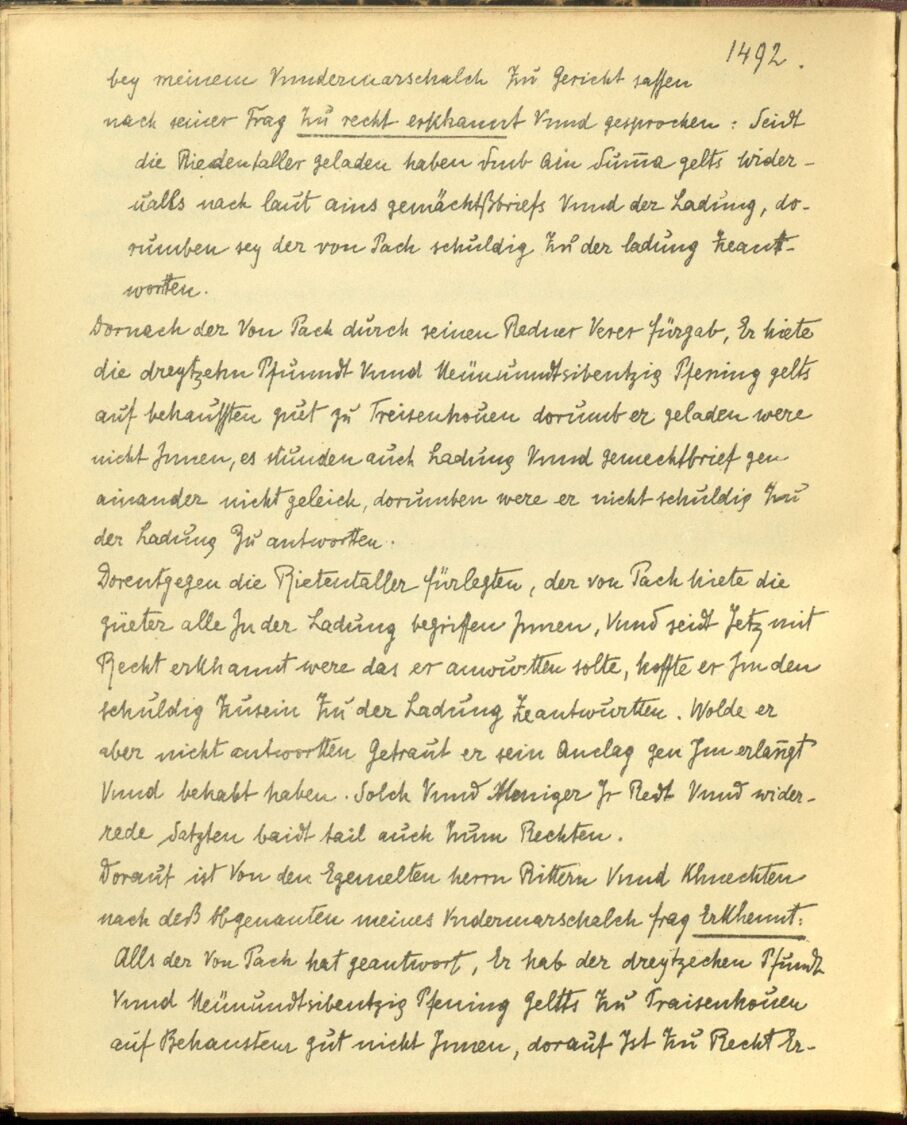 1492.
bey meinem Vnndermarschalch Zu Gericht sassen
nach seiner Frag Zu recht erkhannt Vnnd gesprochen: Seidt
die Riedentaller geladen haben Vmb Ain Sum̄a gelts wider-
ualls nach laut ains gemächtßbriefs Vnnd der Ladung, do-
rumben sey der von Pach schuldig Zu der ladung Zeant-
wortten.
Dornach der Von Pach durch seinen Redner Verer fürgab, Er hiete
die dreytzehn Pfunndt Vnnd Neünundtsibentzig Pfening gelts
auf behaussten guet zu Treisenhouen dorumb er geladen were
nicht Innen, es stunden auch Ladung Vnnd gemechtbrief gen
ainander nicht geleich, dorumben were er nicht schuldig Zu
der Ladung Zu antwortten.
Dorentgegen die Rietentaller fürlegten, der von Pach hiete die
güeter alle In der Ladung begriffen Innen, Vnnd seidt Jetz mit
Recht erkhannt were das er anwurtten solte, hoffte er Im den
schuldig Zusein Zu der Ladung Zeantwurtten. Wolde er
aber nicht antwortten Getraut er sein Anclag gen Im erlangt
Vnnd behabt haben. Solch Vnnd Meniger Ir Redt Vnnd wider-
rede Satzten baidt tail auch Zum Rechten.
Dorauf ist Von den Egemelten herrn Rittern Vnnd Khnechten
nach deß Obgenanten meines Vndermarschalch frag Erkhennt:
Alls der Von Pach hat geantwort, Er hab der dreytzechen Pfundt
Vnnd Neünundtsibentzig Pfening Geltts Zu Traisenhouen
auf Behausten gut nicht Innen, dorauf Ist Zu Recht Er-